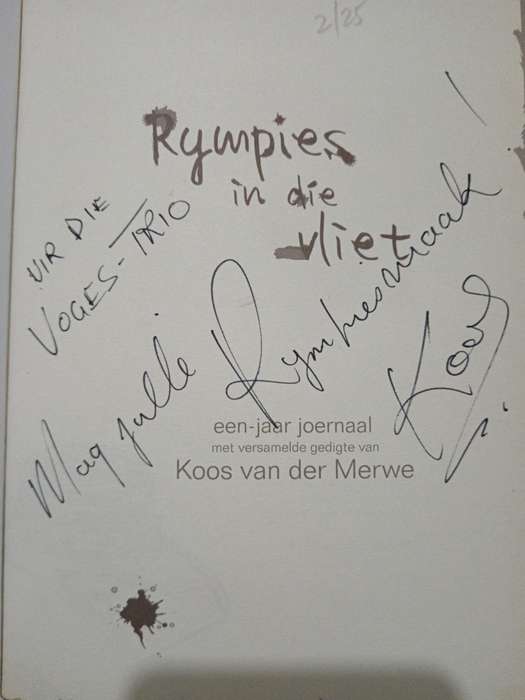 2/25
Rympies
in die
vliet
VIR DIE
VOGES-TRIO
Mag julle Rympiesmaak!
Koos
een-jaar joernaal
met versamelde gedigte van
Koos van der Merwe